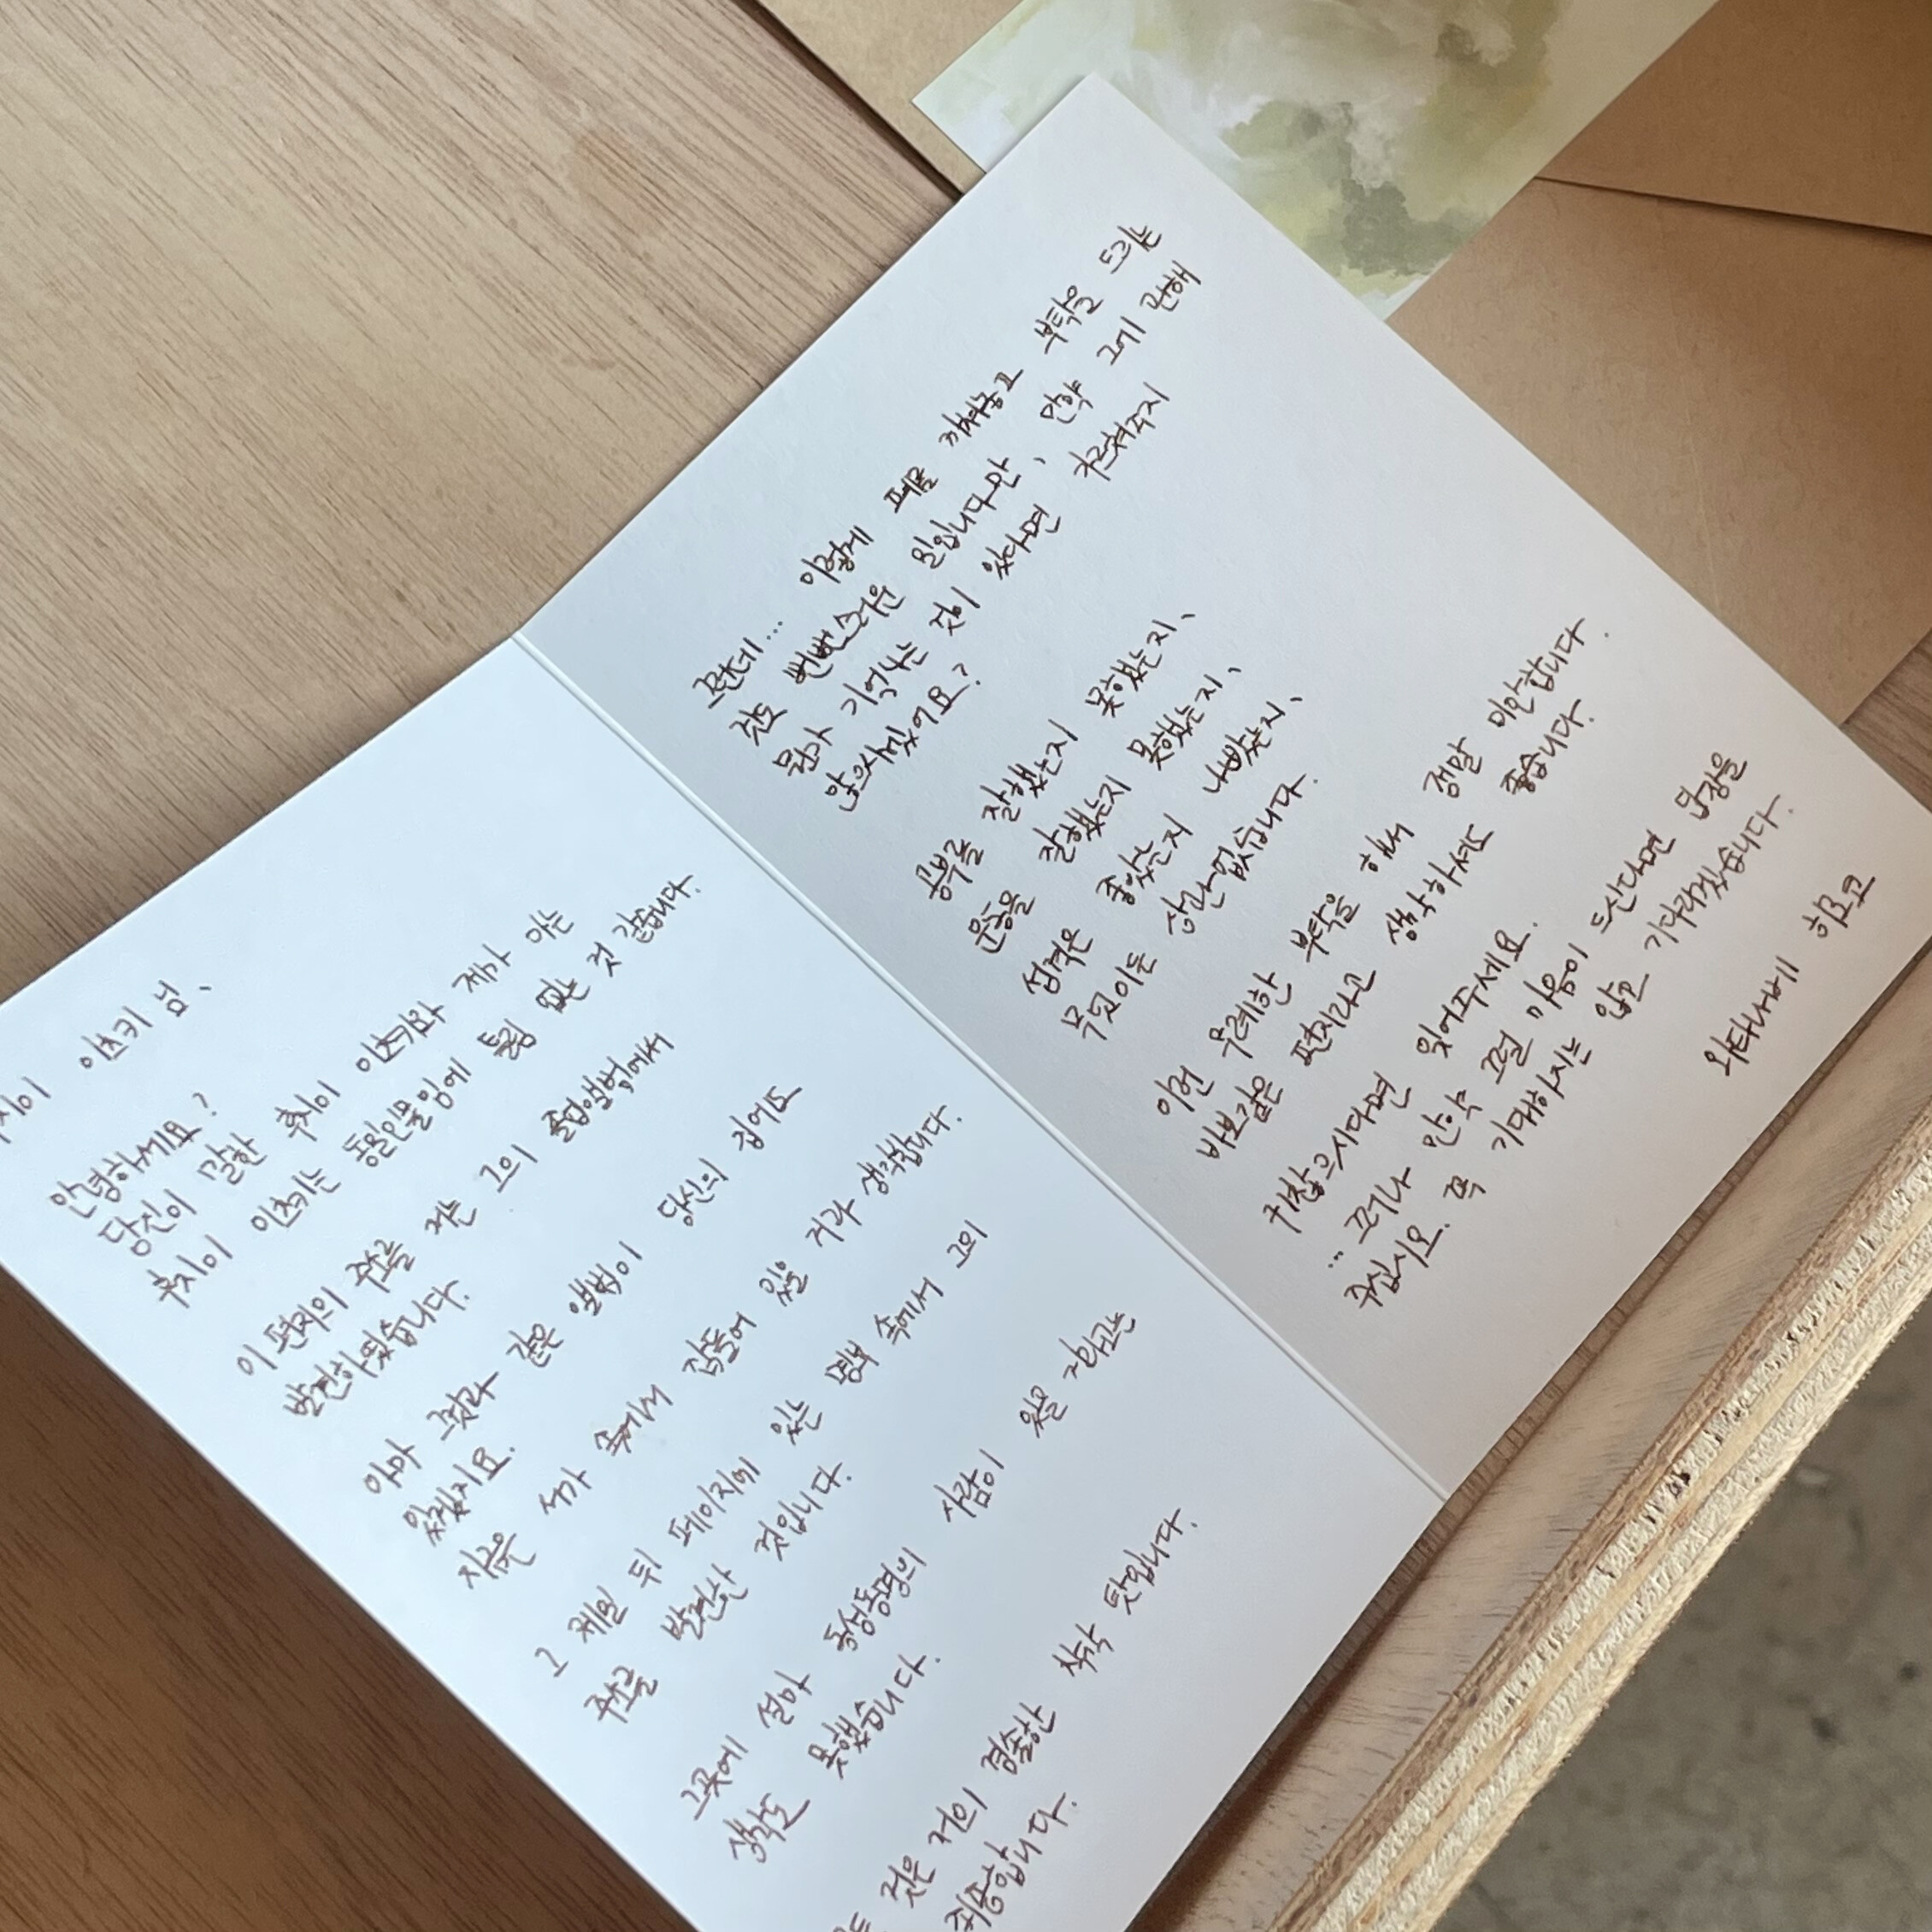 이츠키 님,
안녕하세요?
당신이 말한 후지이 이츠키와 제가 아는
후지이 이츠키는 동일인물임에 틀림 없는 것 같습니다.
이 편지의 주소를 저는 그의 졸업앨범에서
발견하였습니다.
아마 그것과 같은 앨범이 당신의 집에도
있겠지요.
지금은 서가 속에서 잠들어 있을 거라 생각합니다.
그 제일 뒤 페이지에 있는 명부 속에서 그의
주소를 발견한 것입니다.
그곳에 설마 동성동명의 사람이 있을 거라고는
생각도 못했습니다.
것은 저의 경솔한 착각 탓입니다.
죄송합니다.
그런데... 이렇게 폐를 끼쳐놓고 부탁을 드리는
것도 뻔뻔스러운 일입니다만, 만약 그에 관해
뭔가 기억나는 것이 있다면 가르쳐주지
않으시겠어요?
공부를 잘했는지 못했는지,
운동을 잘했는지 못했는지,
성격은 좋았는지 나빴는지,
무엇이든 상관없습니다.
이런 무례한 부탁을 해서 정말 미안합니다.
바보같은 편지라고 생각하셔도 좋습니다.
귀찮으시다면 잊어주세요.
... 그러나 만약 그럴 마음이 드신다면 답장을
주십시오. 꼭 기대하지는 않고 기다리겠습니다.
와타나베 히로코